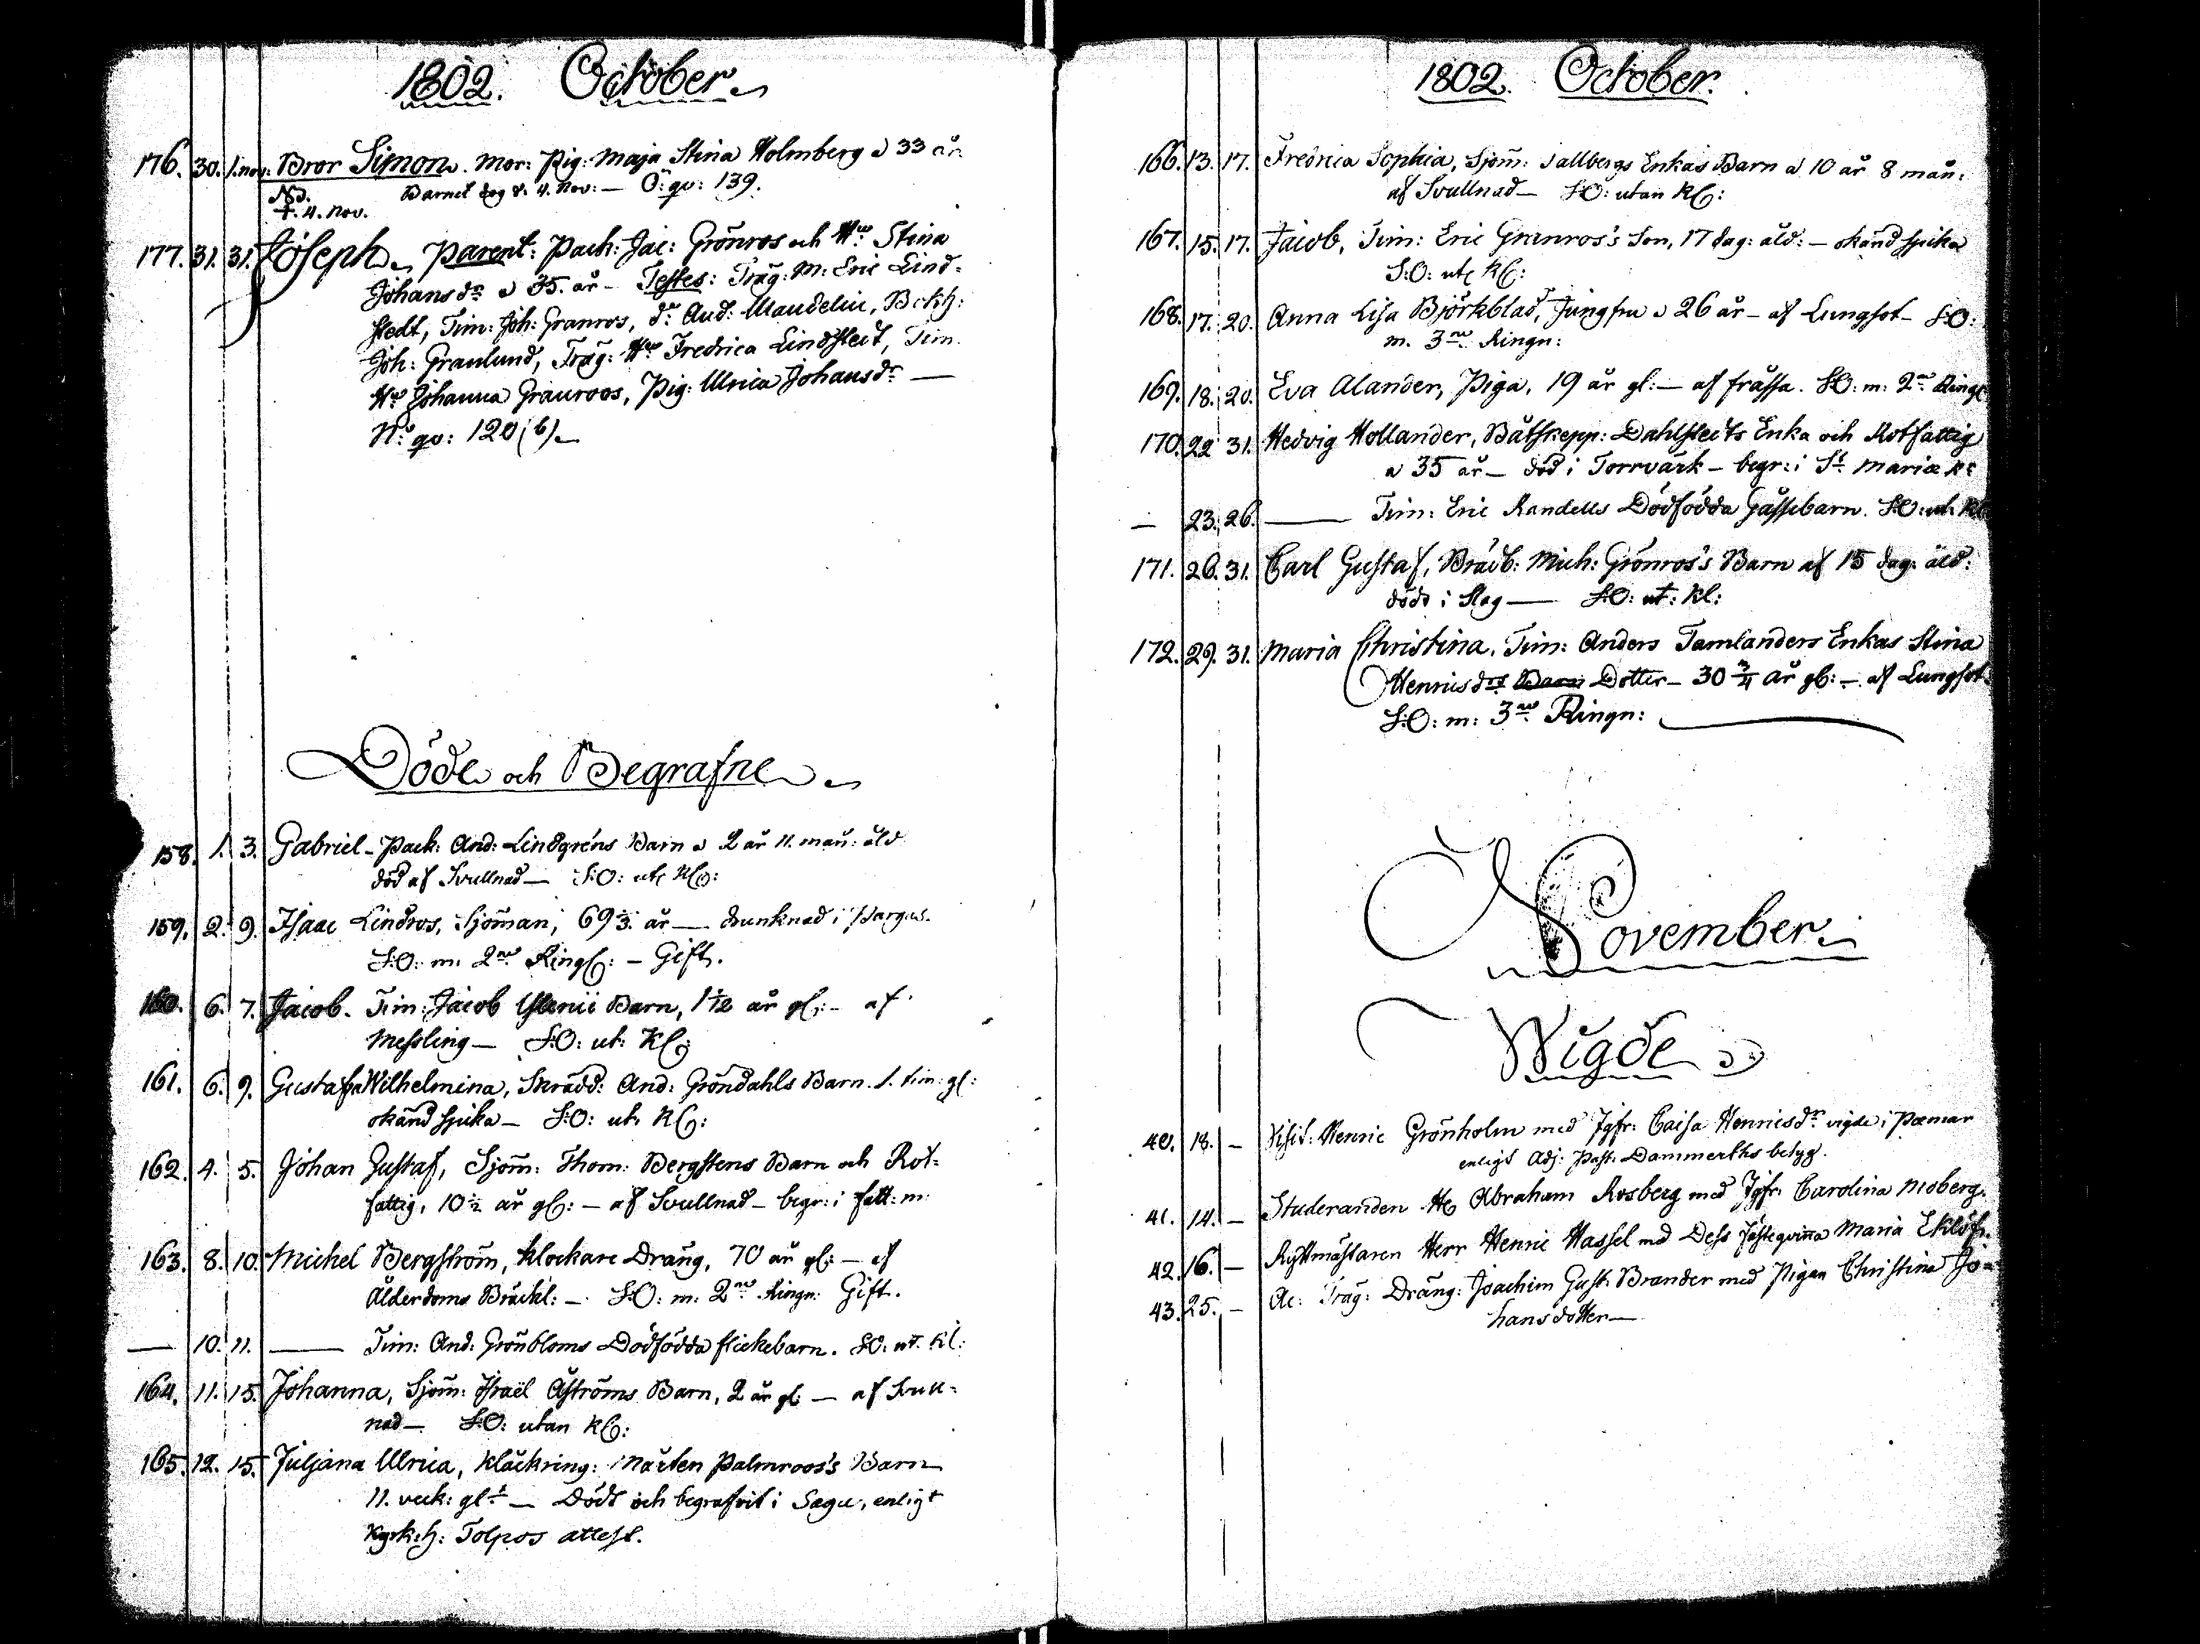 1802. October.
176. 30. 1. nov: Bror Simon. Mor: Pig: Maja Stina Holmberg a 33 år.
Nb. Barnet dog d. 4. Nov: — Ö: qv: 139.
†. 4. Nov.
177. 31. 31. Joseph. Parent: Pach: Jac: Grönros och Hu Stina
Johansdr a 35. år — Testes: Träg: M: Eric Lind-
stedt, Tim: Joh: Granros, dr: And: Wandelin, Bokh:
Joh: Granlund, Träg: Hu Fredrica Lindstedt, Tim:
Hu Johanna Granroos, Pig: Ulrica Johansdr —
N: qv: 120 (b).
Döde och Begrafne
158. 1. 3. Gabriel — Pack: And: Lindgréns Barn a 2 år 11. mån: åld
död af Svullnad — S:O: ut: Kl:
159. 2. 9. Isaac Lindros, Sjöman, 69 1/3. år — drunknad i Pargas.
S:O: m: 2ne Ringn: — Gift.
160. 6. 7. Jacob. Tim: Jacob Ylenii Barn, 1 1/12 år gl: — af
Messling — S:O: ut: Kl:
161. 6. 9. Gustafva Wilhelmina, Skrädd: And: Gröndahls Barn. 1. tim: gl:
okänd sjuka — S:O: ut: Kl:
162. 4. 5. Johan Gustaf, Sjöm: Thom: Bergstens Barn och Rot-
fattig, 10 1/2 år gl: — af Svullnad — begr: i fatt: m:
163. 8. 10. Michel Bergström, Klockare Dräng, 70 år gl: — af
Ålderdoms Bräckl: — S:O: m: 2ne Ringn: Gift.
— 10. 11. — Tim: And: Grönbloms Dödfödda flickebarn. S:O: ut: Kl:
164. 11. 15. Johanna, Sjöm: Israël Åströms Barn, 2 år gl: — af Svull-
nad — S:O: utan Kl:
165. 12. 15. Juljana Ulrica, Kläckring: Mårten Palmroos's Barn
11. veck: gl: — Dödt och begrafvit i Sagu, enligt
Kyrk:h: Tolpos attest.
1802. October.
166. 13. 17. Fredrica Sophia, Sjöm: Tallbergs Enkas Barn a 10 år 8 mån:
af Svullnad — S:O: utan Kl:
167. 15. 17. Jacob, Tim: Eric Grönros's Son, 17 dag: åld: — okänd sjuka
S:O: ut: Kl:
168. 17. 20. Anna Lisa Björkblad, Jungfru a 26 år — af Lungsot — S:O:
m. 3ne Ringn:
169. 18. 20. Eva Alander, Piga, 19 år gl: — af frässa. S:O: m: 2ne Ring:
170. 22 31. Hedvig Hollander, Båtskepp: Dahlstedts Enka och Rotfattig
a 35 år — död i Torrvärk — begr: i St Mariæ K:
— 23. 26. — Tim: Eric Randells Dödfödda Gåssebarn. S:O: ut: Kl
171. 26. 31. Carl Gustaf, Brädb: Mich: Grönros's Barn af 15 dag: åld:
dödt i Slag — S:O: ut: Kl:
172. 29. 31. Maria Christina, Tim: Anders Tamlanders Enkas Stina
Henricsdrs Barn Dotter — 30 3/4 år gl: — af Lungsot.
S:O: m: 3ne Ringn:
November.
Wigde
40. 18. — Visit: Henric Grönholm med Jgfr: Caisa Henricsdr vigde i Pæmar
enligt Adj: Past: Dammerths betyg.
41. 14. — Studeranden H: Abraham Rosberg med Jgfr: Carolina Moberg.
42. 16. — Ryttmästaren Herr Henric Hassel md Dess fästeqvinna Maria Eklöf.
43. 25. — Ac: Träg: Dräng: Joachim Gust: Brander med Pigan Christina Jo-
hansdotter —